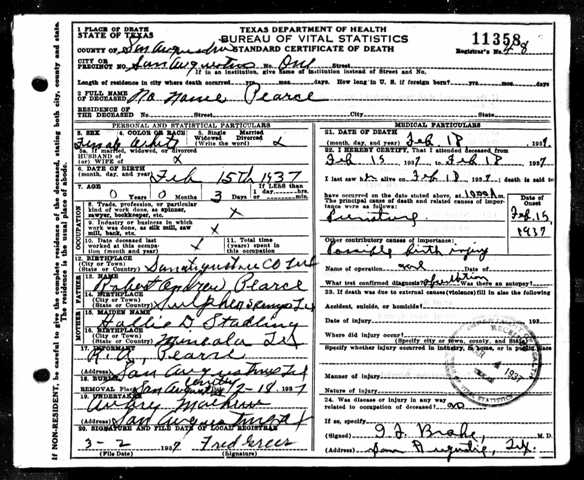 TEXAS DEPARTMENT OF HEALTH
BUREAU OF VITAL STATISTICS
STANDARD CERTIFICATE OF DEATH
11358
Registrar's No. 48
1 PLACE OF DEATH
STATE OF TEXAS
COUNTY OF San Augustine
CITY OR
PRECINCT NO. San Augustine No. One Street
If in an institution, give name of institution instead of Street and No.
Length of residence where death occurred yrs. mos. days. How long in U. S. if foreign born? yrs. mos. days
2 FULL NAME
OF DECEASED No Name Pearce
RESIDENCE OF
THE DECEASED Street City State
PERSONAL AND STATISTICAL PARTICULARS
3. SEX 4. COLOR OR RACE 5. Single Married
Widowed Divorced
(Write the word)
Female White
5a. If married, widowed or divorced
HUSBAND OF
(or) WIFE OF X
6. DATE OF BIRTH
(month, day, and year) Feb 15th 1937
7. AGE 0 Years 0 Months 3 Days If LESS than
1 day, hrs.
or min.
OCCUPATION
8. Trade, profession, or particular
kind of work done, as spinner,
sawyer, bookkeeper, etc. X
9. Industry or business in which
work was done, as silk mill, saw
mill, bank, etc. X
10. Date deceased last
worked at this occupa-
tion (month and year)
11. Total time (years)
spent in this
occupation
12. BIRTHPLACE
(City or Town)
(State or Country) San Augustine Co
FATHER
13. NAME
Robert Andrew Pearce
14. BIRTHPLACE
(City or Town)
(State or Country) Sulpher Springs Tex
MOTHER
15. MAIDEN NAME
Hallie D.
16. BIRTHPLACE
(City or Town)
(State or Country) Mineola Tex
17. INFORMANT
R. A. Pearce
(Address) San Augustine Tex
18. BURIAL
REMOVAL Place San Augustine 2-18 1937
19. UNDERTAKER
(Address) San Augustine Tex
20. SIGNATURE AND FILE DATE OF LOCAL REGISTRAR
3-2 1937 Fred Greer
(File Date) (Signature)
MEDICAL PARTICULARS
21. DATE OF DEATH
(month, day, and year) Feb 18 1937
22. I HEREBY CERTIFY, That I attended deceased from
Feb 15 1937 to Feb 18 1937
I last saw alive on Feb 18 1937 death is said to
have occurred on the date stated above, at m.
The principal cause of death and related causes of impor-
tance were as follows:
Date of
Onset
Premature Feb. 15
1937
Other contributory causes of importance:
Possible birth injury
Name of operation
What test confirmed diagnosis?
23. If death was due to external causes (violence) fill in also the following
Accident, suicide, or homicide?
Date of injury 193
Where did injury occur?
(Specify city or town, county, and state)
Specify whether injury occurred in industry, in home, or in public place
Manner of injury
Nature of injury
24. Was disease or injury in any way
related to occupation of deceased? no
If so, specify
(Signed) M. D.
(Address) San Augustine, Tex.